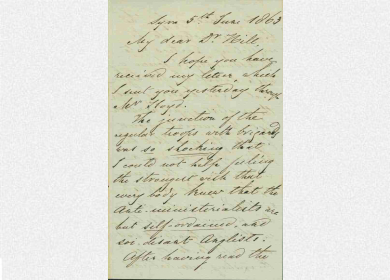 Syra 5th June 1863
My dear Dr. Hill
I hope you have
received my letter, which
I sent you yesterday through
Mr Lloyd.
The junction of the
regular troops with brigands
was so shocking that
I could not help feeling
the strongest wish that
every body knew that the
Anti-ministerialists are
but self-ordained, and
soi-disant Anglists.
After having read the